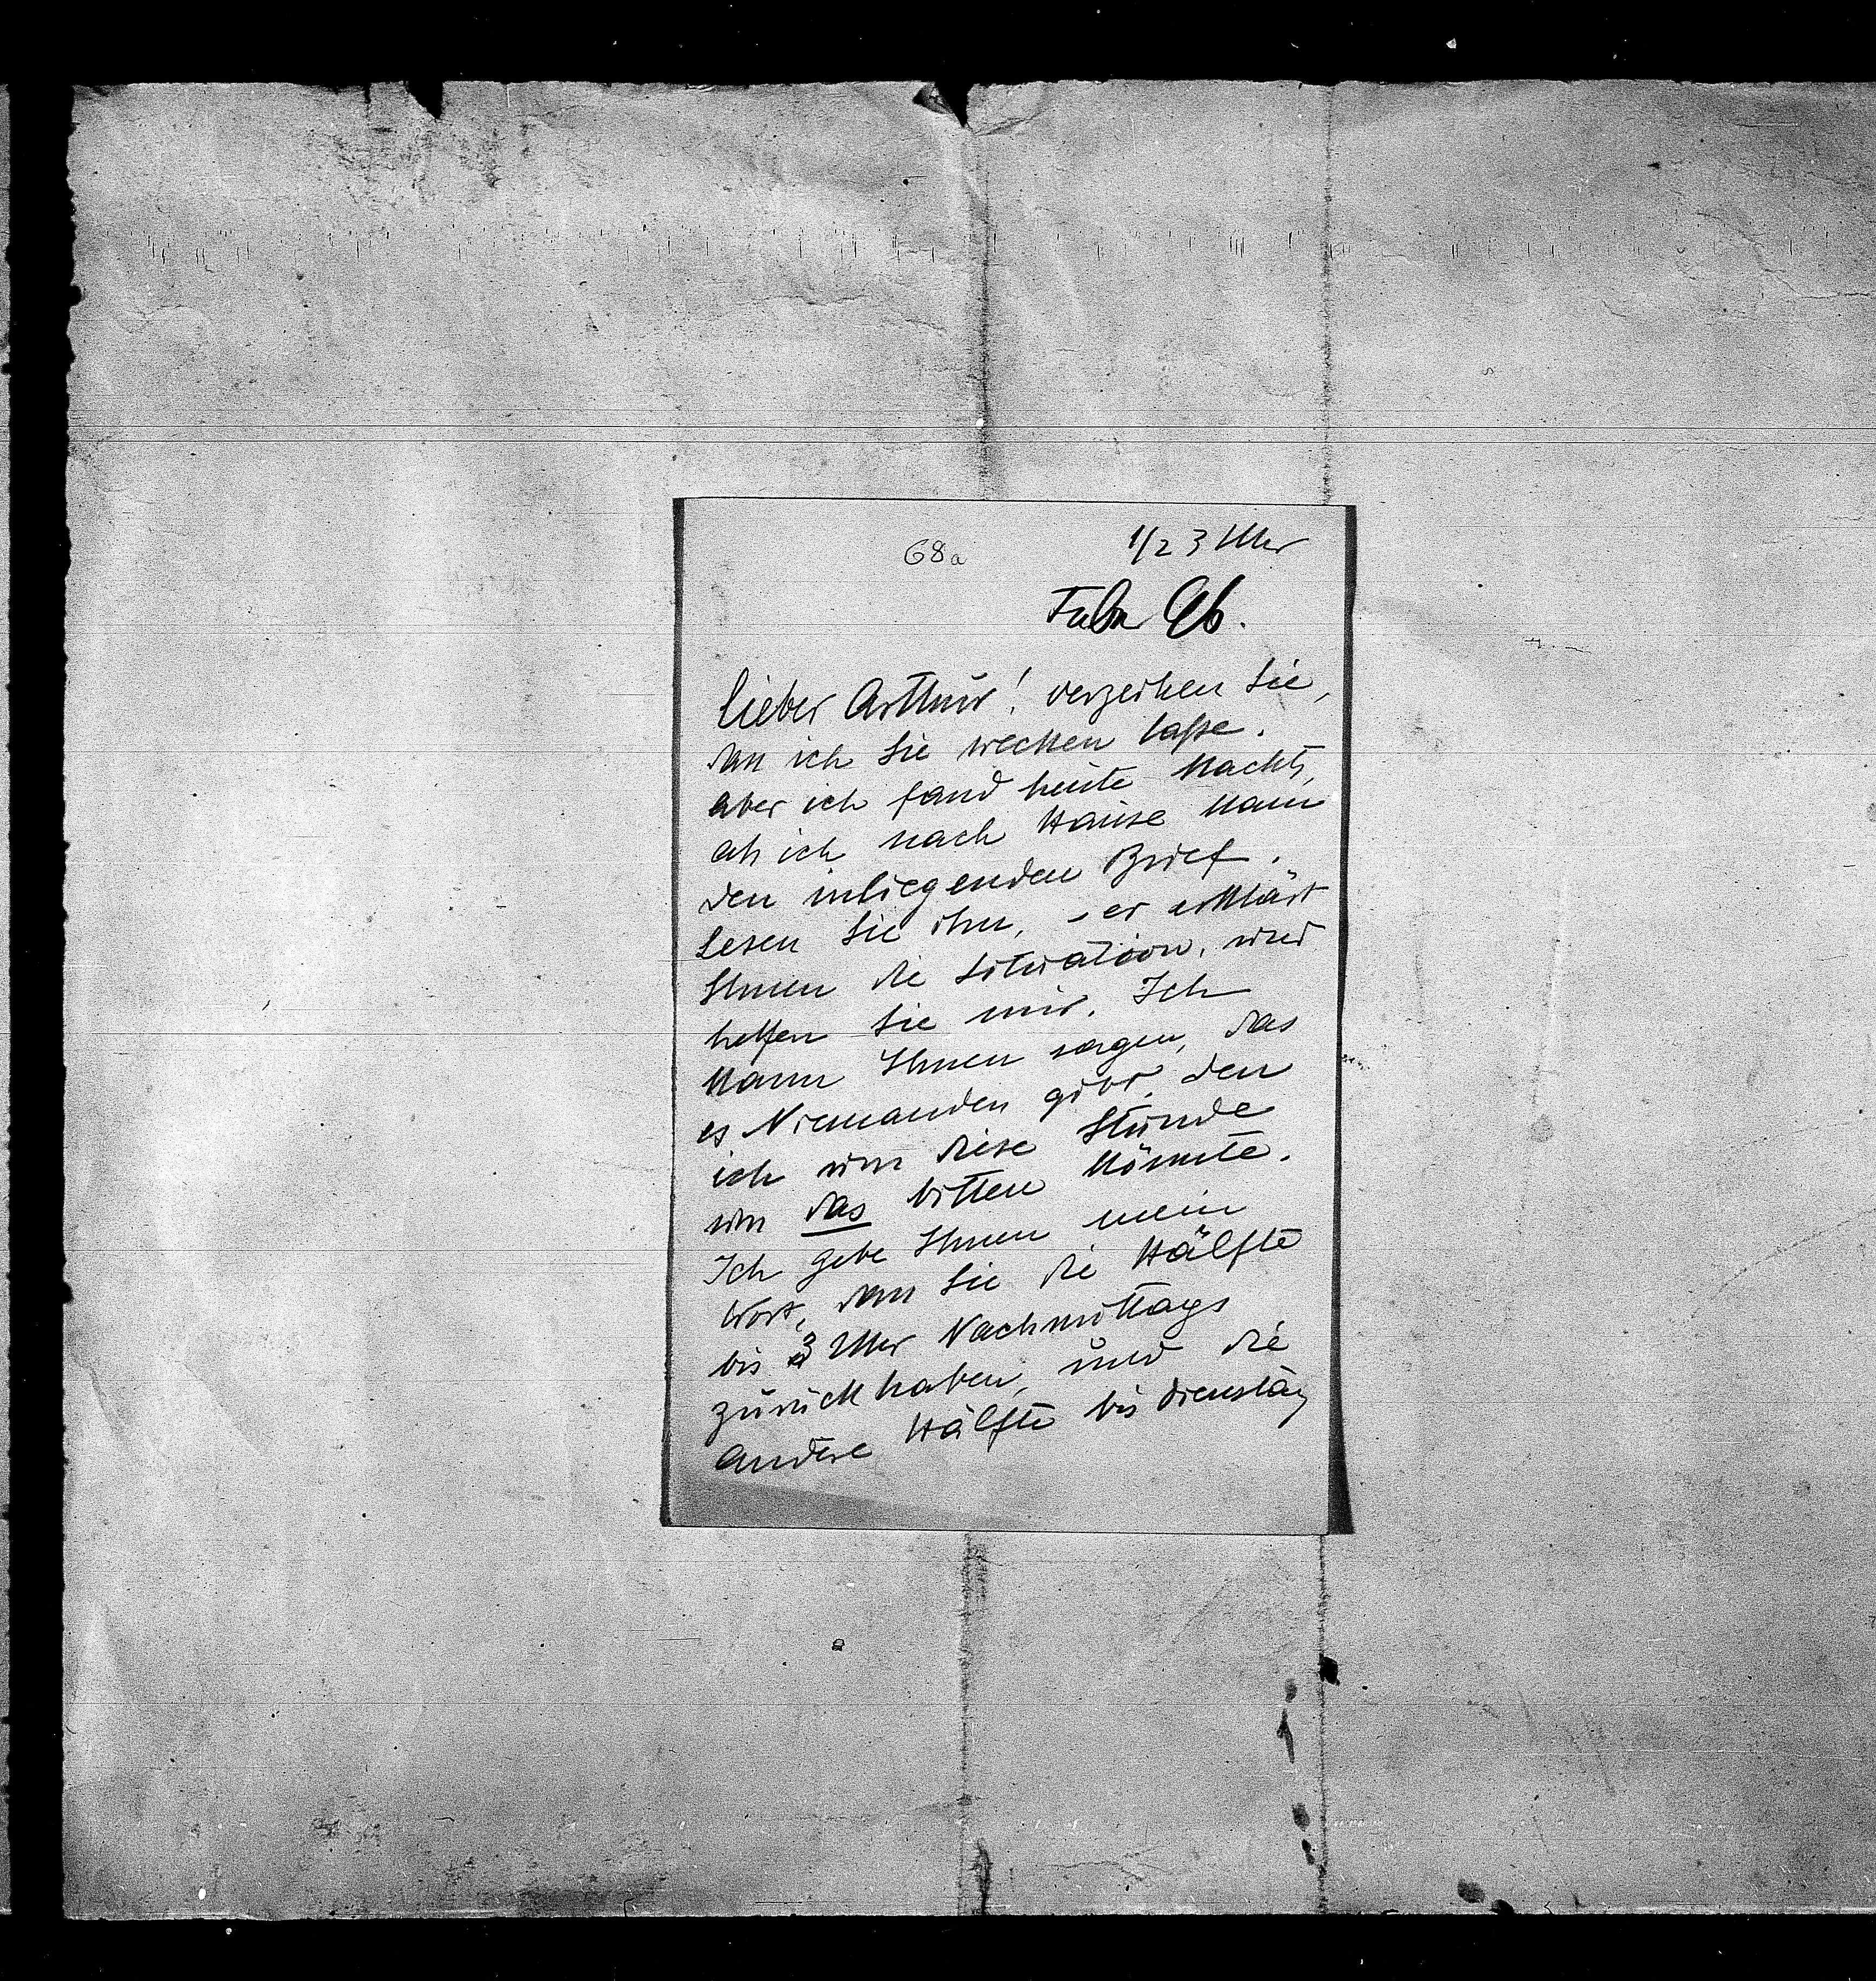 68a
1/2 3 Uhr
Febr 96.
lieber Arthur! verzeihen Sie,
dass ich Sie wecken lasse.
aber ich fand heute Nachts,
als ich nach Hause kam
den inliegenden Brief.
Lesen Sie ihn, er erklärt
Ihnen die Situation, und
helfen Sie mir. Ich
kann Ihnen sagen, das
es Niemanden gibt, den
ich um diese Stunde
um das bitten könnte.
Ich gebe Ihnen mein
Wort, dass Sie die Hälfte
bis 3 Uhr Nachmittags
zurückhaben, und die
andere Hälfte bis Dienstag